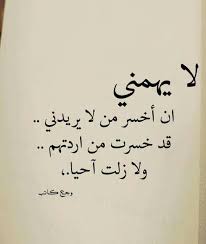 لا يهمني
ان أخسر من لا يريدني ..
قد خسرت من اردتهم ..
ولا زلت آحيا.،
وجع كاتب